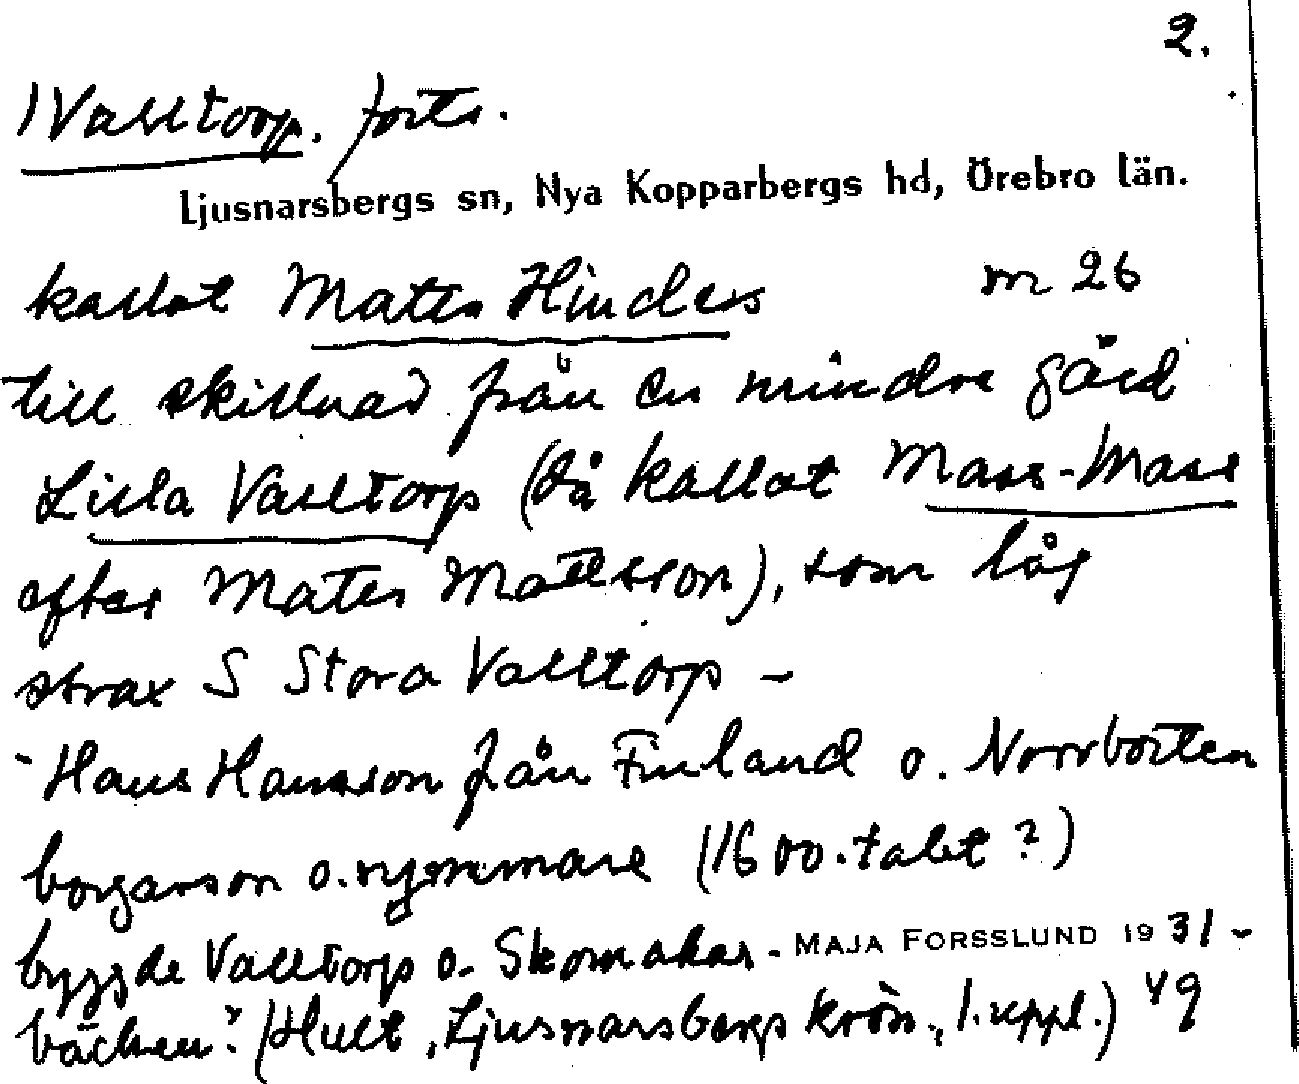 2.
1 Valltorp. forts.
Ljusnarsbergs sn, Nya Kopparbergs hd, Örebro län.
kallat Mattes Hindes m 26
till skillnad från en mindre gård
Lilla Valltorp (då kallat Mass-Mass
efter Mattes Mattsson), som låg
strax S Stora Valltorp –
Hans Hansson från Finland o. Norrbotten
borgarson o. rymmare (1600-talet?)
byggde Valltorp o. Skomakar- MAJA FORSSLUND 1931 -
bäcken? (Hult, Ljusnarsbergs krön., 1. uppl.) 49